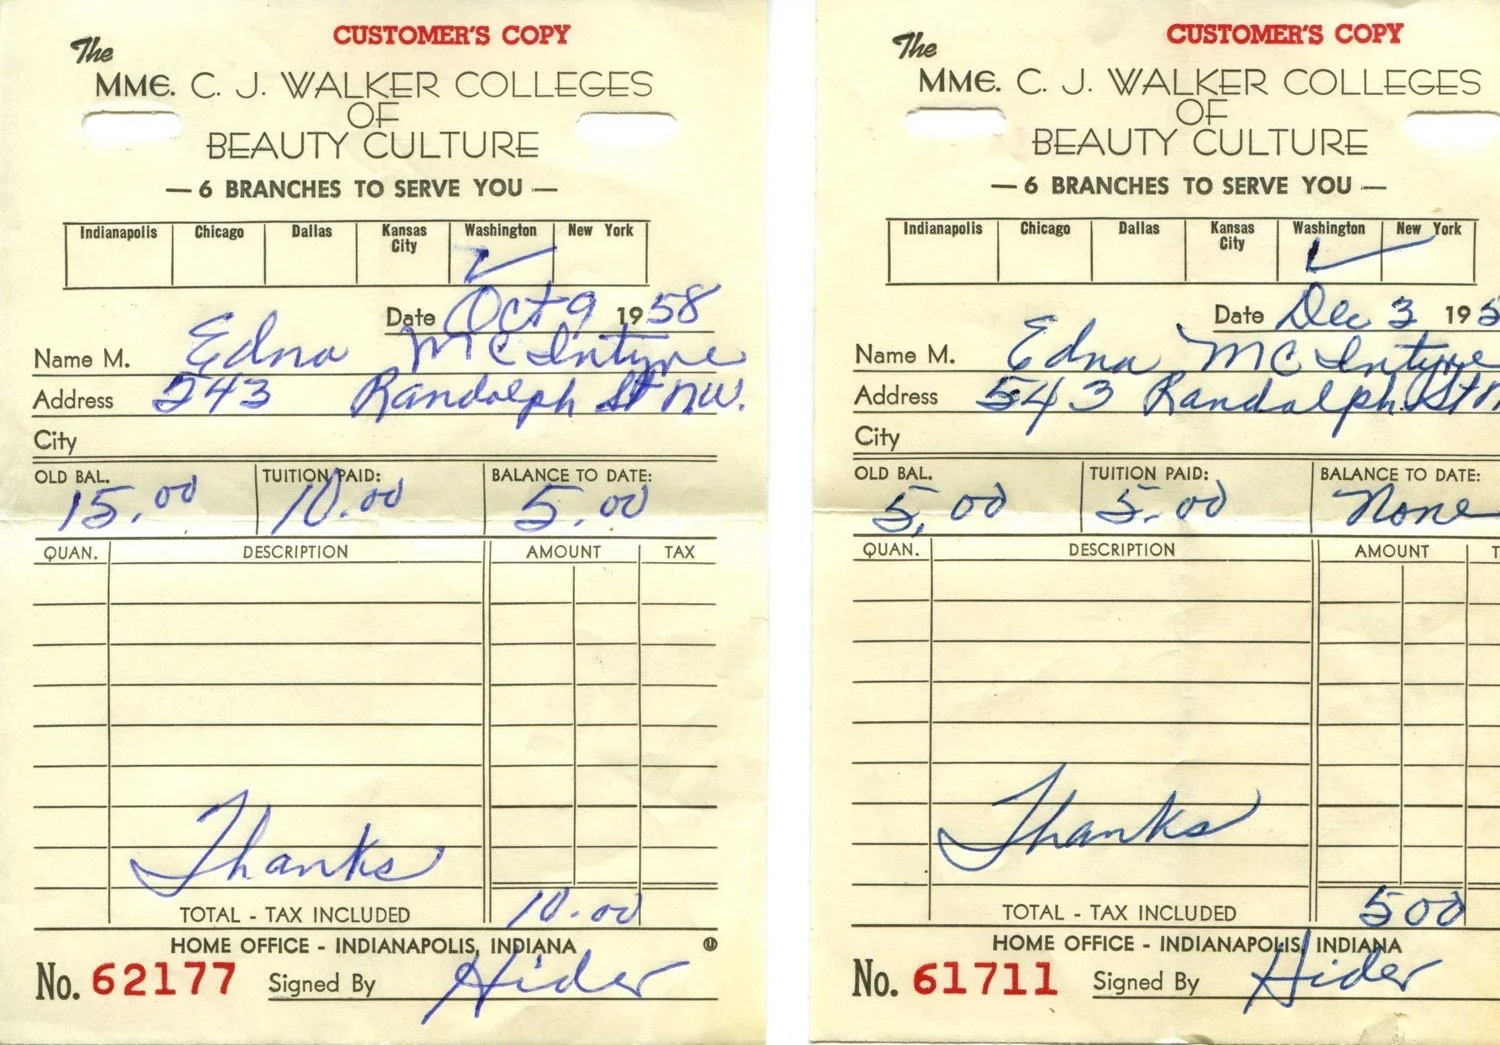 CUSTOMER'S COPY
The
MME. C. J. WALKER COLLEGES
OF
BEAUTY CULTURE
— 6 BRANCHES TO SERVE YOU —
Indianapolis Chicago Dallas Kansas City Washington New York
Date Oct 9 1958
Name M. Edna McIntyre
Address 543 Randolph St NW.
City
OLD BAL. TUITION PAID: BALANCE TO DATE:
15.00 10.00 5.00
QUAN. DESCRIPTION AMOUNT TAX
Thanks
TOTAL - TAX INCLUDED 10.00
HOME OFFICE - INDIANAPOLIS, INDIANA
No. 62177 Signed By Hider
CUSTOMER'S COPY
The
MME. C. J. WALKER COLLEGES
OF
BEAUTY CULTURE
— 6 BRANCHES TO SERVE YOU —
Indianapolis Chicago Dallas Kansas City Washington New York
Date Dec 3 195
Name M. Edna McIntyre
Address 543 Randolph St
City
OLD BAL. TUITION PAID: BALANCE TO DATE:
5.00 5.00 None
QUAN. DESCRIPTION AMOUNT T
Thanks
TOTAL - TAX INCLUDED 500
HOME OFFICE - INDIANAPOLIS, INDIANA
No. 61711 Signed By Hider